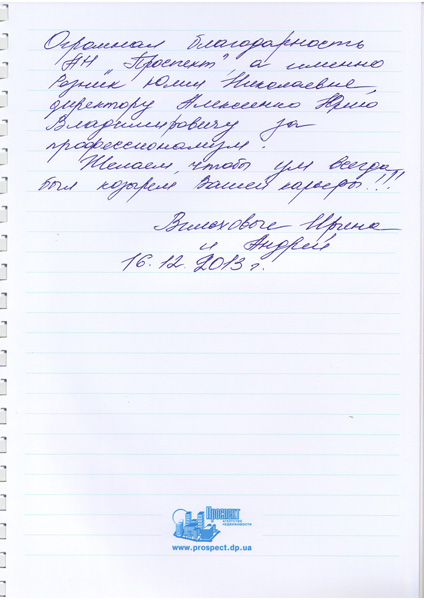 Огромная благодарность
АН "Проспект", а именно
Розник Юлии Николаевне,
директору Алексеенко Юрию
Владимировичу за
профессионализм.
Желаем, чтобы ум всегда
был козырем Вашей карьеры!!!
Ирина
и Андрей
16.12.2013г.
Проспект
агентство
недвижимости
www.prospect.dp.ua